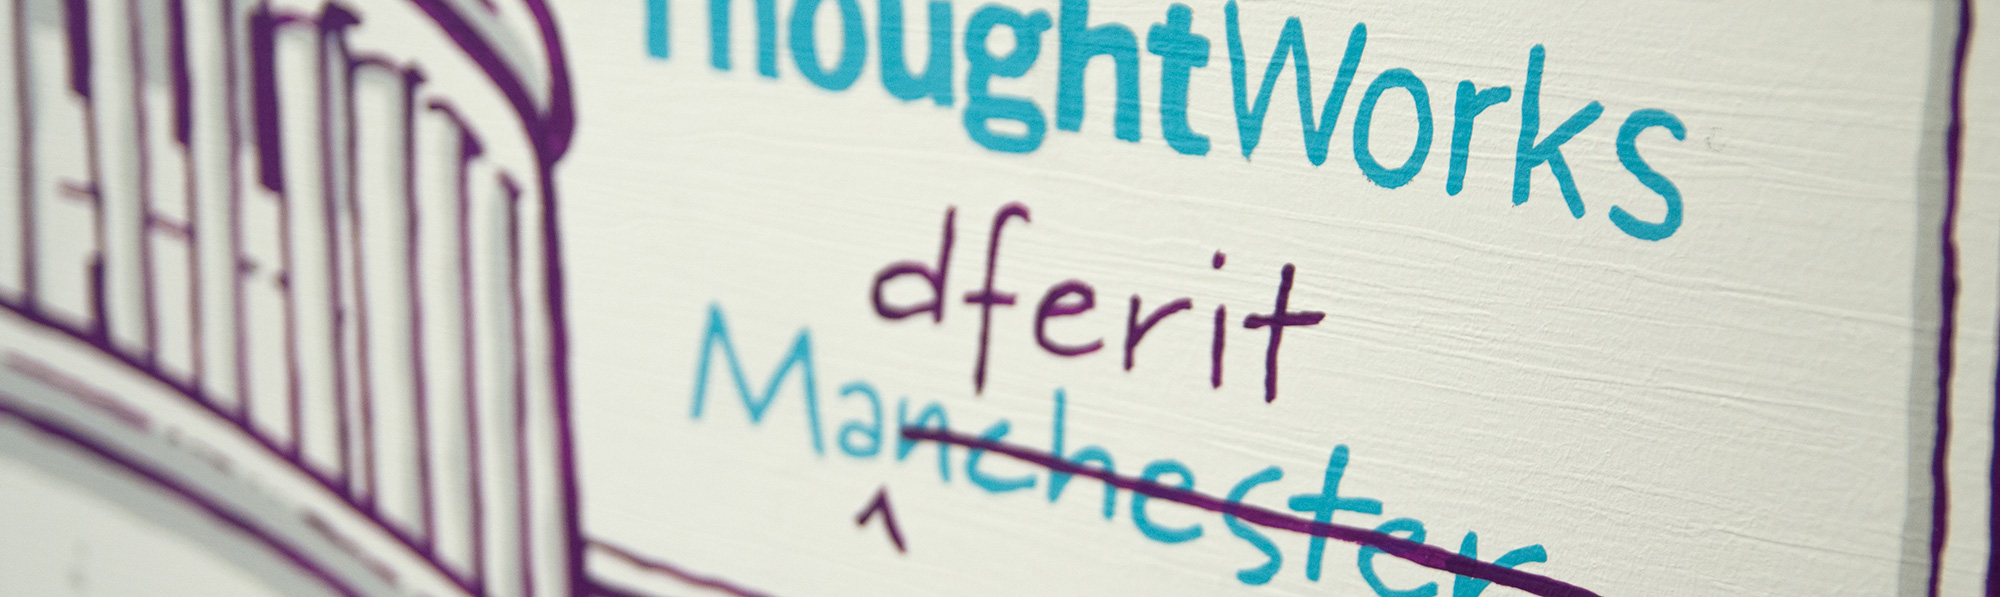 ThoughtWorks
dferit
Manchester
^